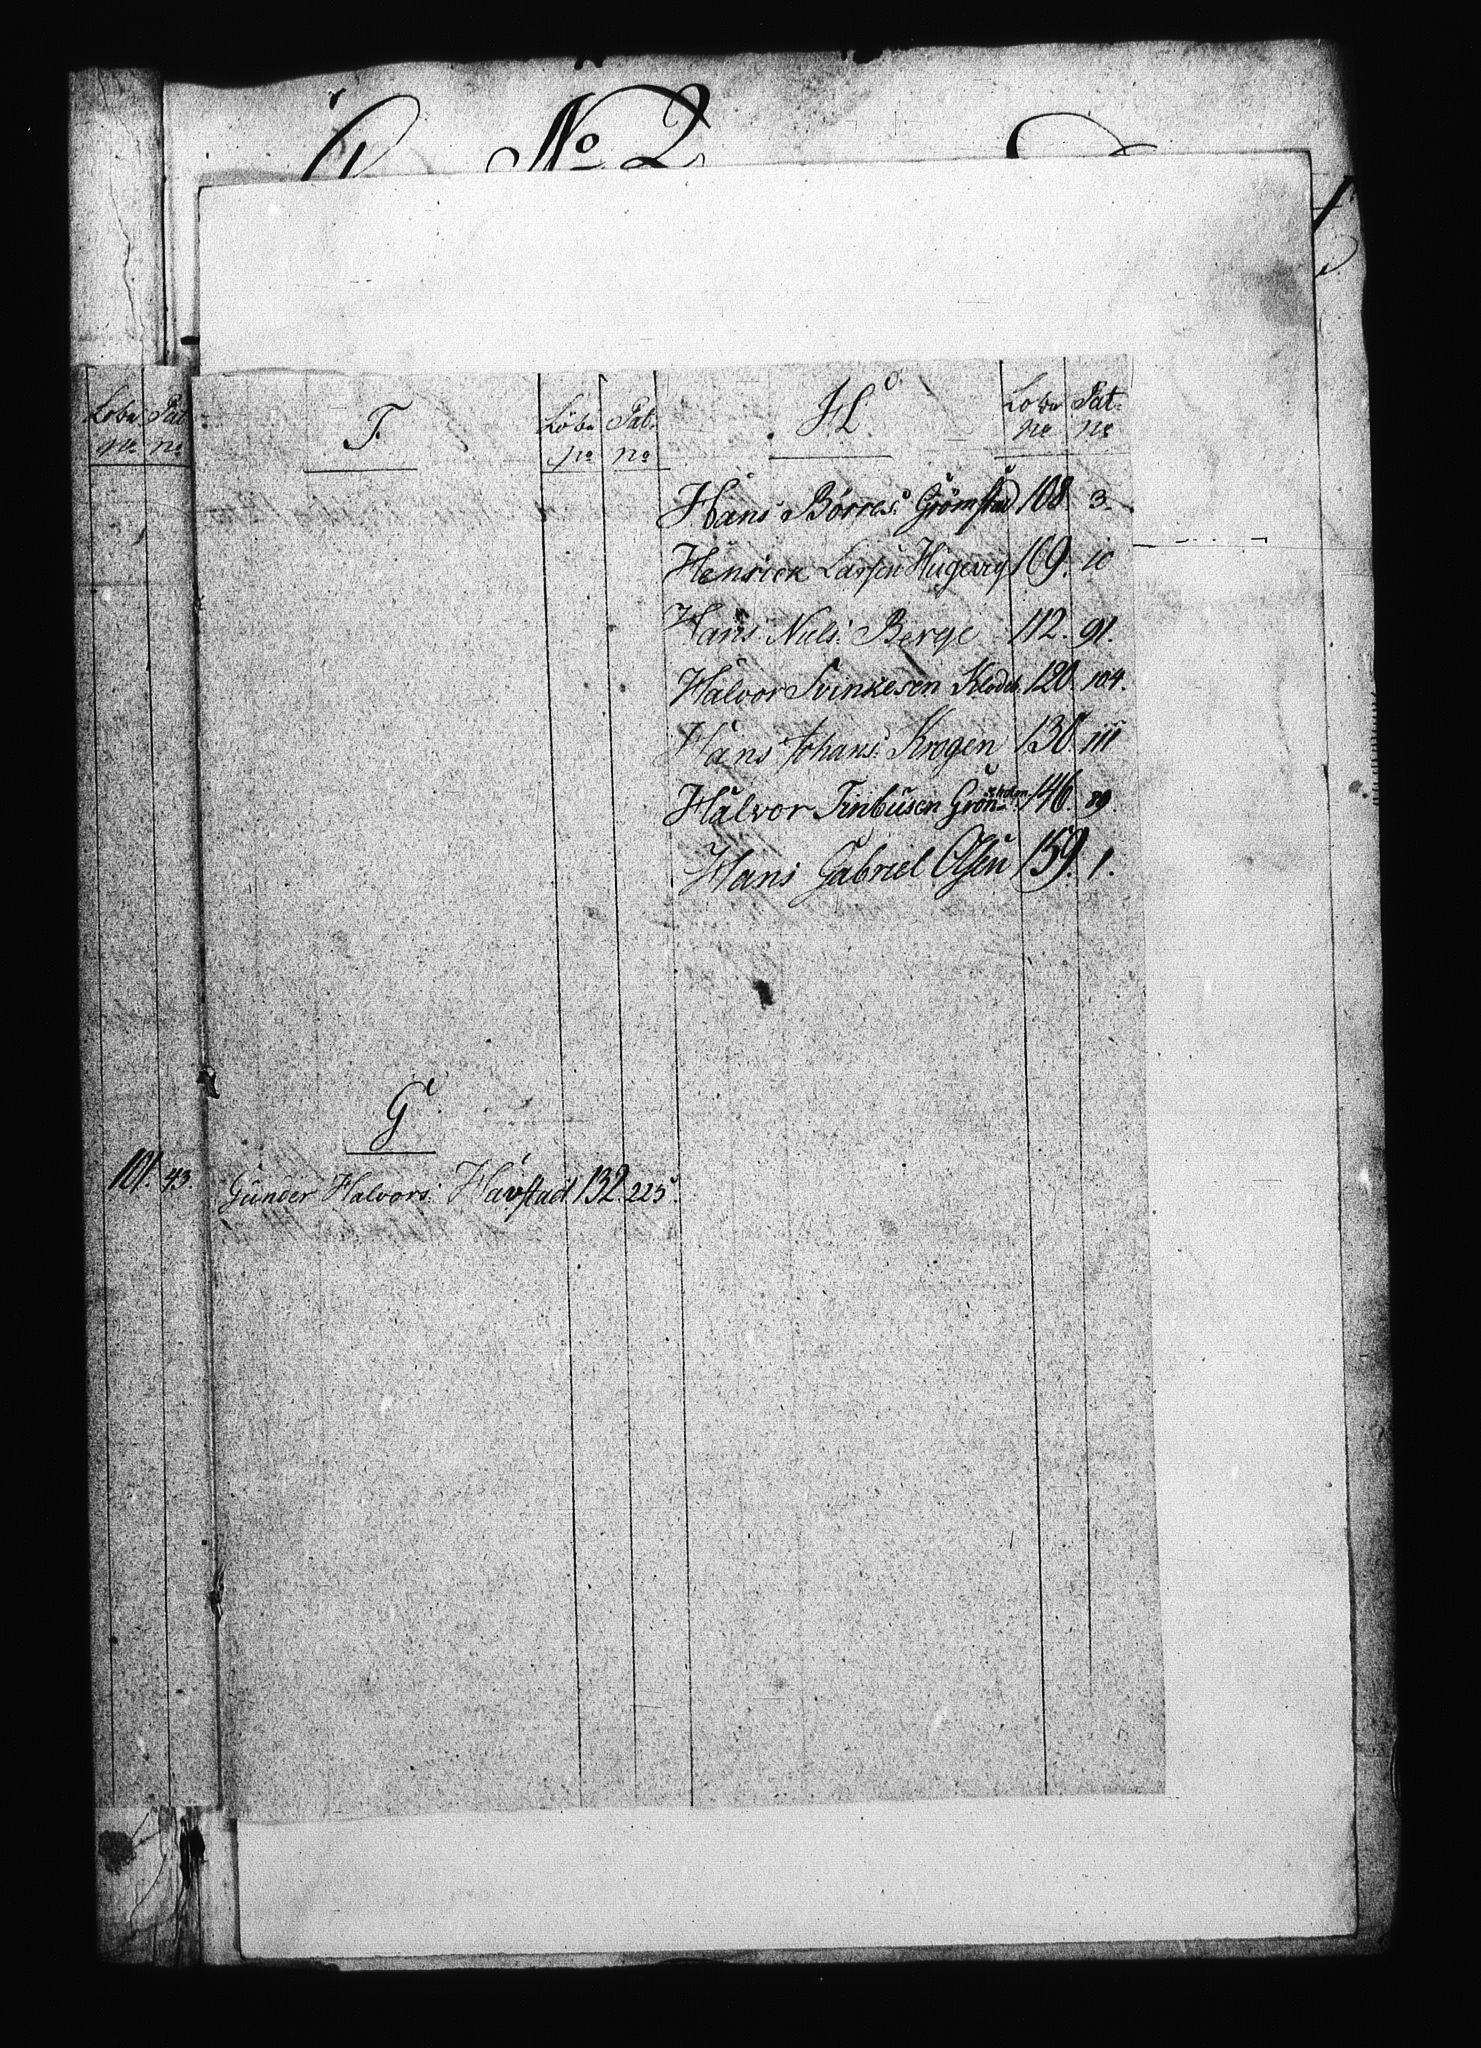 No 2
Løbe Pat
no no
101. 43.
F.
Løbe Pat.
no no
G
Gunder Halvors. Havstad 132 225.
H.
Løbe Pat.
no no
Hans Børres. Grömstad 108. 3.
Henrick Larsen Hugevig 109. 10
Hans Niels. Berge 112. 91.
Halvor Svinkesen Klodeb. 120. 104.
Hans Johans. Krogen 130. 111
Halvor Tinbusen Grönholm. 146. 89.
Hans Gabriel Olsen 159. 1.